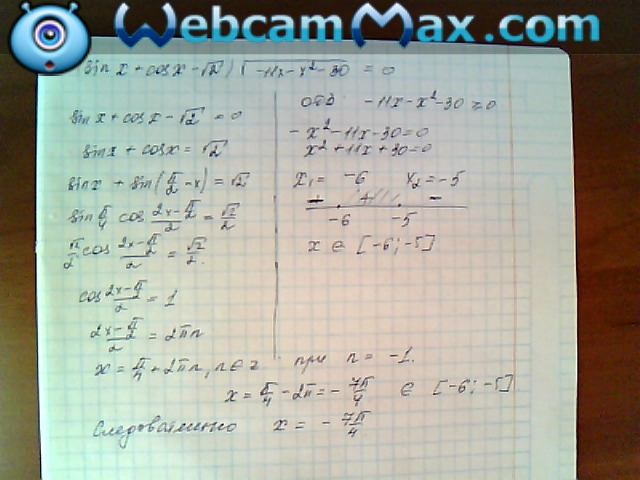 WebcamMax.com
www.webcammax.com
(sin x + cos x - √2) √(-11x - x² - 30) = 0
sin x + cos x - √2 = 0
sin x + cos x = √2
sin x + sin(π/2 - x) = √2
sin π/4 cos (2x - π/2)/2 = √2/2
√2/2 cos (2x - π/2)/2 = √2/2.
cos (2x - π/2)/2 = 1
(2x - π/2)/2 = 2πn
x = π/4 + 2πn, n ∈ z
одз -11x - x² - 30 ≥ 0
- x² - 11x - 30 = 0
x² + 11x + 30 = 0
x₁ = -6 x₂ = -5
- + -
-6 -5
x ∈ [-6; -5]
при n = -1.
x = π/4 - 2π = - 7π/4 ∈ [-6; -5]
Следовательно x = - 7π/4